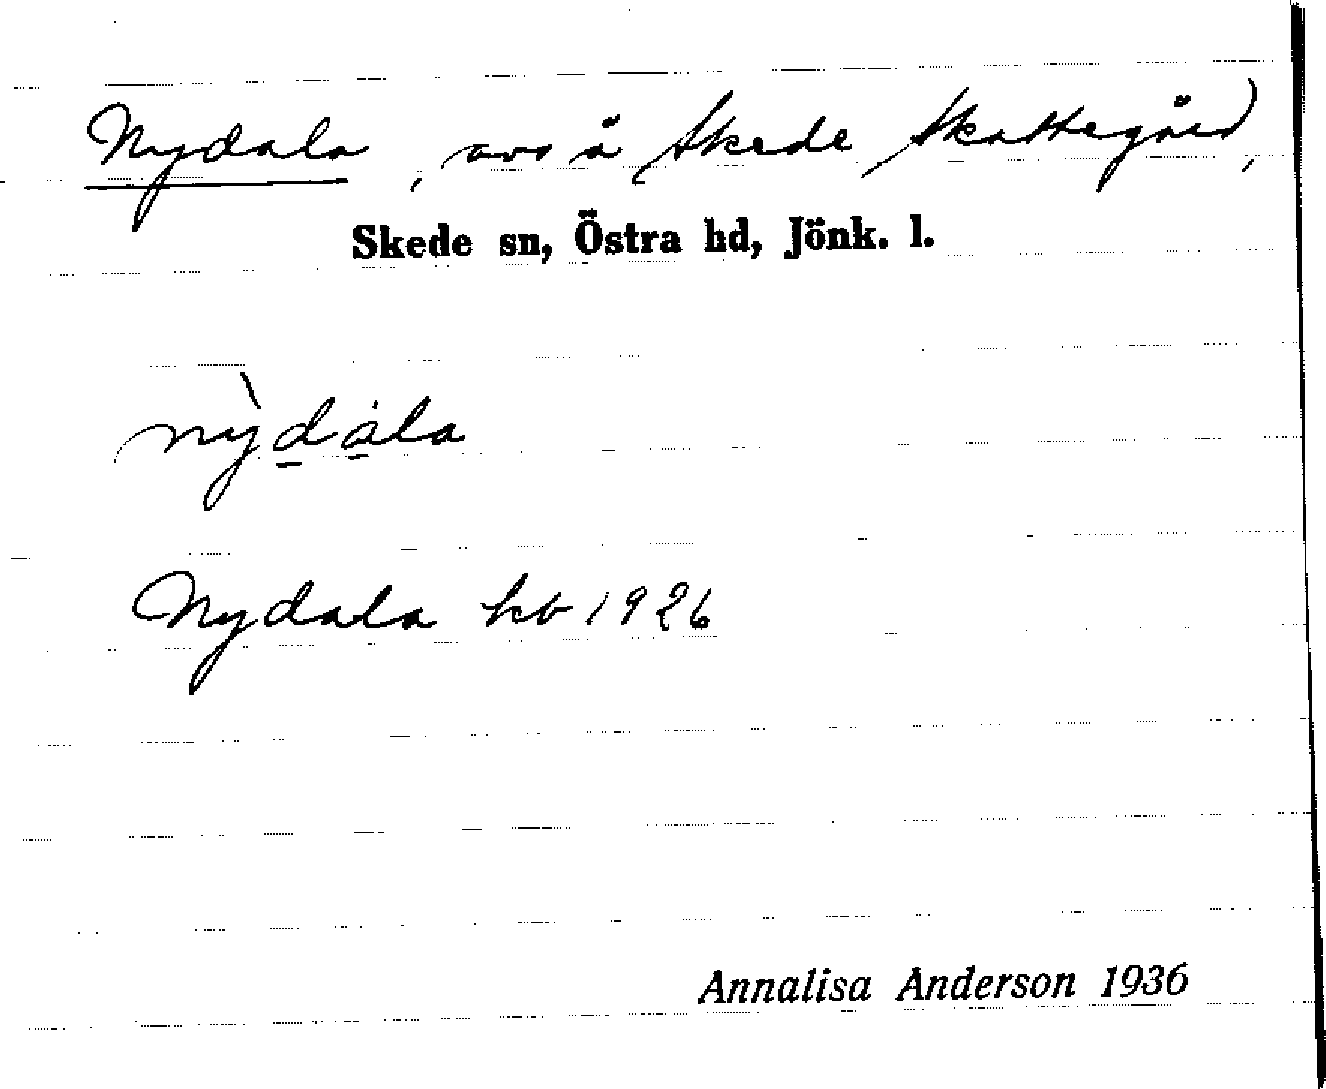 Nydala, avs å Skede Skattegård,
Skede sn, Östra hd, Jönk. l.
nỳdȧla
Nydala kb 1926
Annalisa Anderson 1936